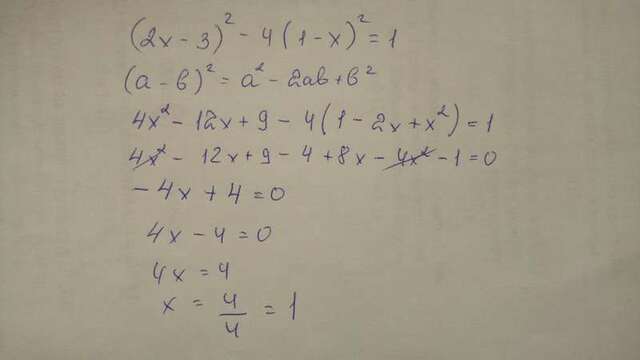 (2x - 3)² - 4(1 - x)² = 1
(a - b)² = a² - 2ab + b²
4x² - 12x + 9 - 4(1 - 2x + x²) = 1
4x² - 12x + 9 - 4 + 8x - 4x² - 1 = 0
- 4x + 4 = 0
4x - 4 = 0
4x = 4
x = 4/4 = 1